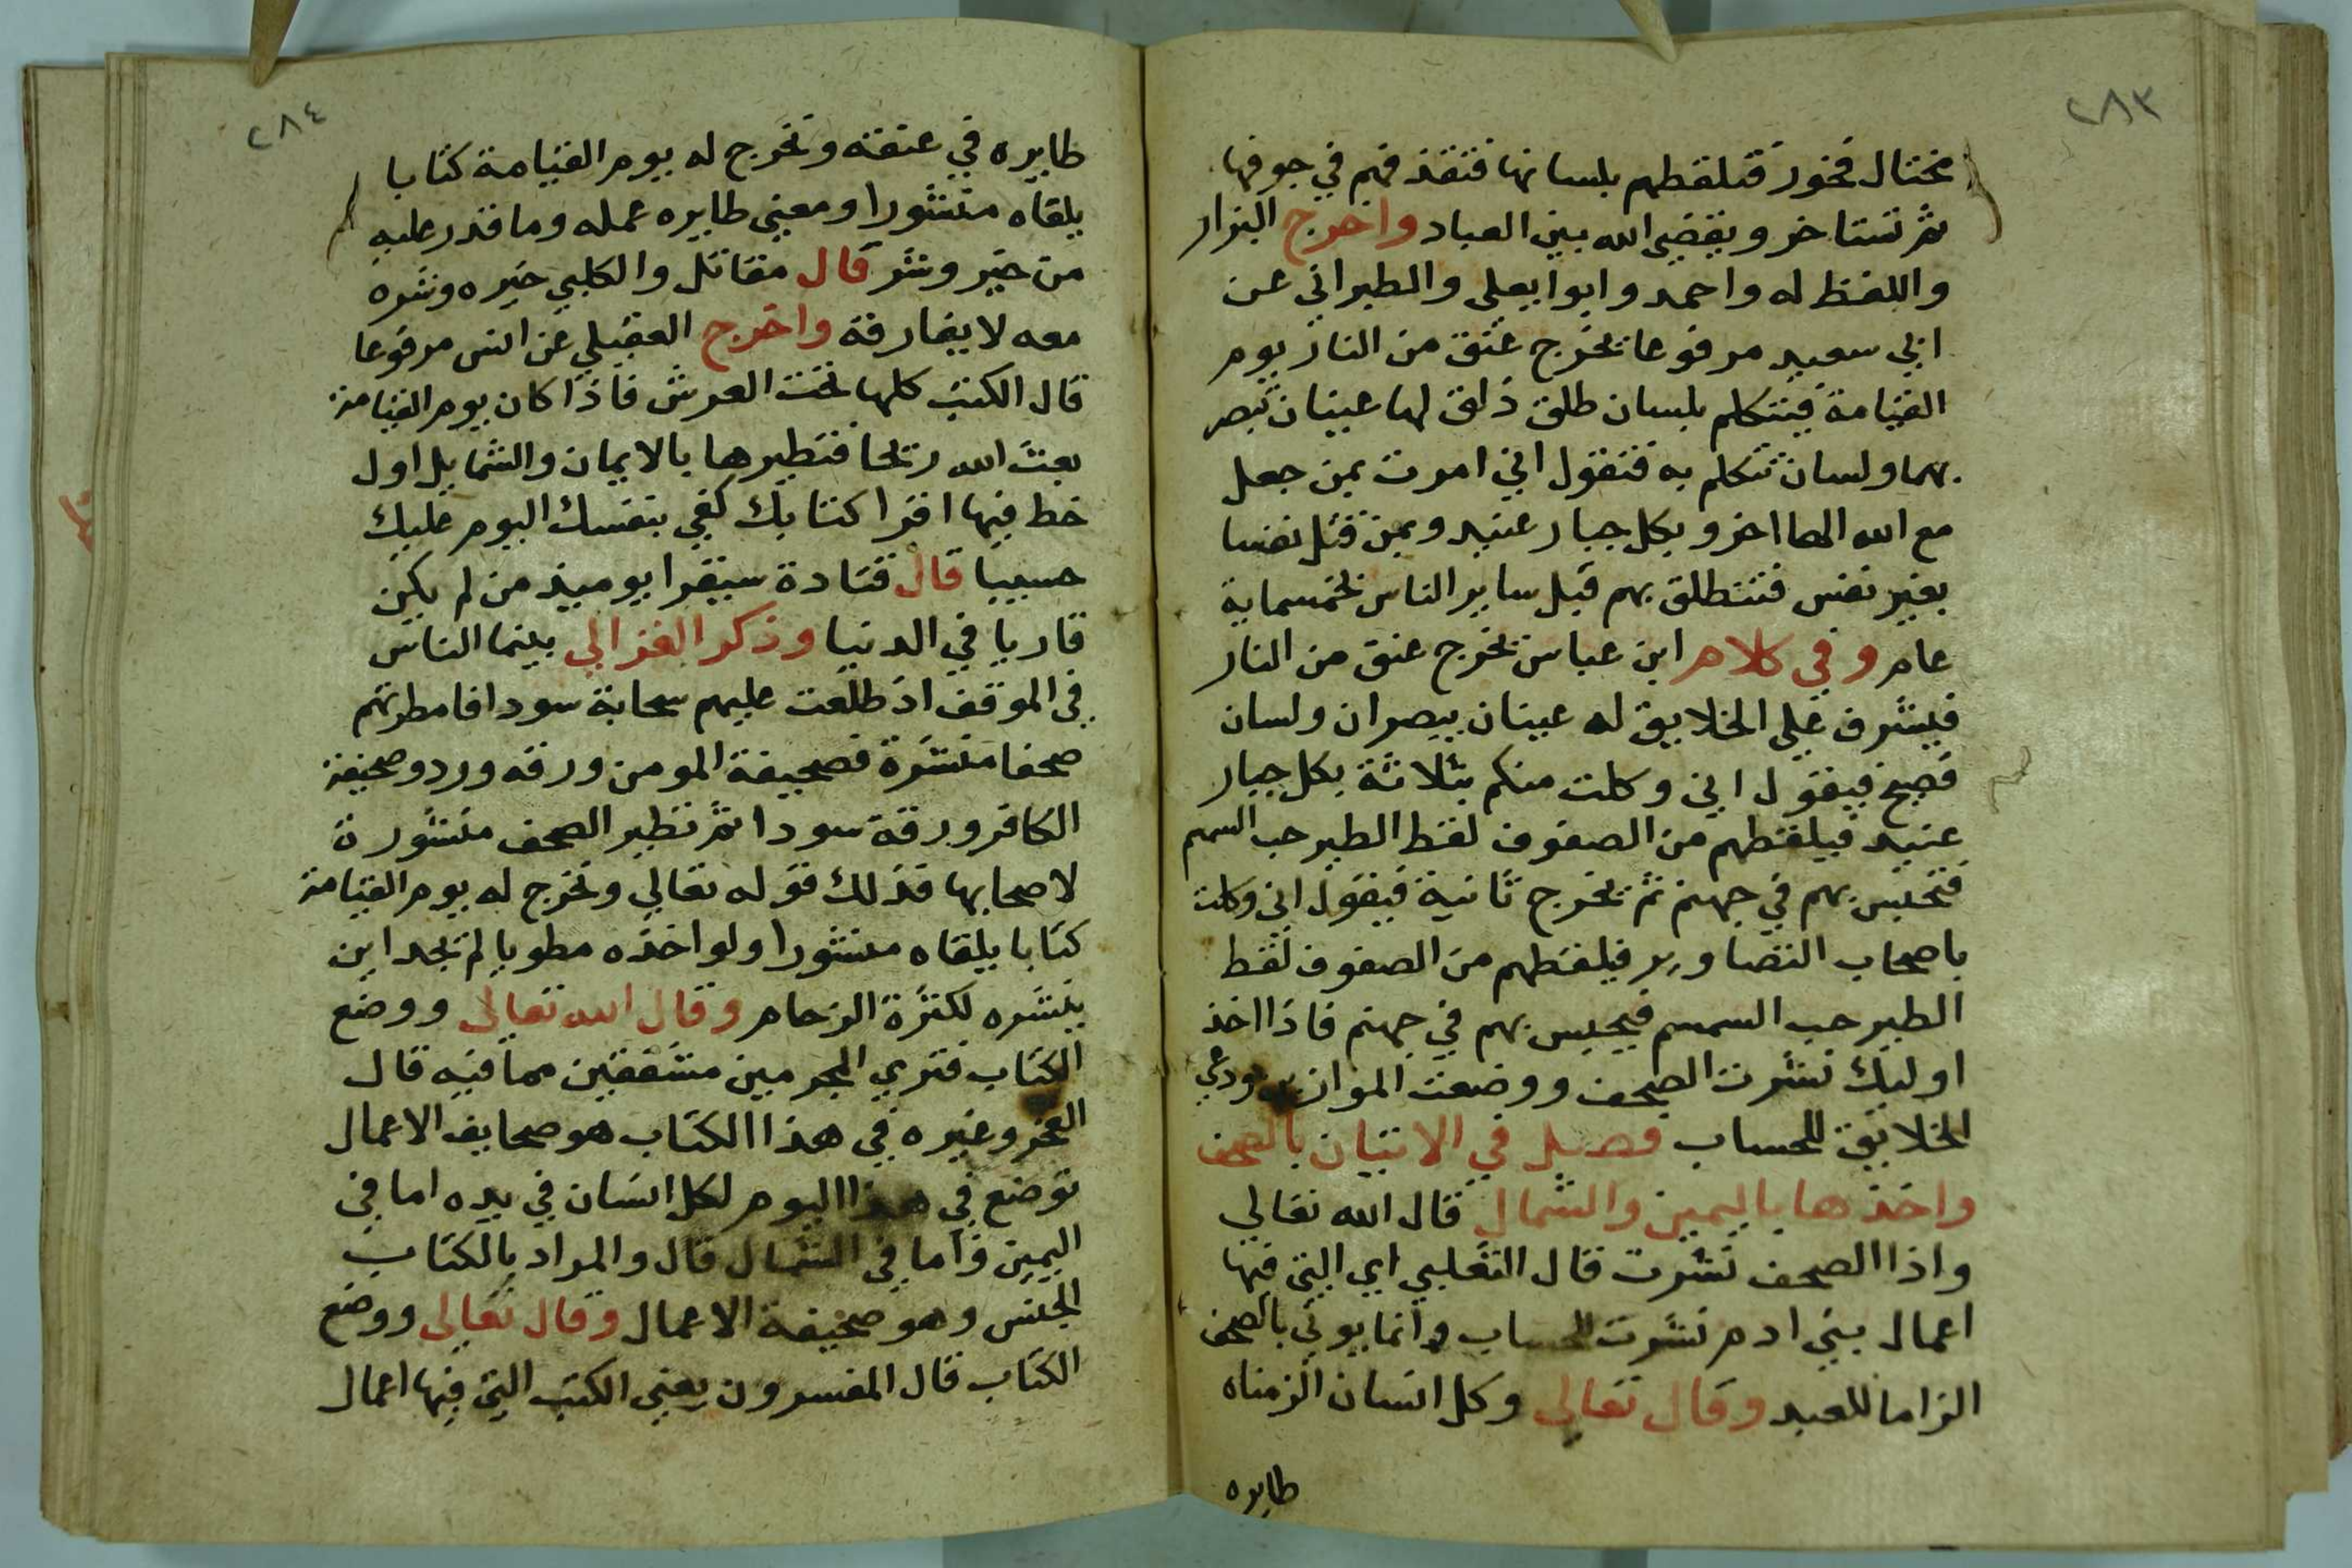 ٢٨٣
مختال فخور فتلقطهم بلسانها فتقذفهم في جوفها
ثم تستاخر ويقضي الله بين العباد واخرج البزار
واللفظ له واحمد وابوا يعلى والطبراني عن
ابي سعيد مرفوعا تخرج عنق من النار يوم
القيامة فتتكلم بلسان طلق ذلق لها عينان تبصر
بهما ولسان تتكلم به فتقول اني امرت بمن جعل
مع الله الها اخر وبكل جبار عنيد وبمن قتل نفسا
بغير نفس فتنطلق بهم قبل ساير الناس بخمسماية
عام وفي كلام ابن عباس تخرج عنق من النار
فيشرف على الخلايق له عينان يبصران ولسان
فصيح فيقول اني وكلت منكم بثلاثة بكل جبار
عنيد فيلقطهم من الصفوف لقط الطير حب السمسم
فتحبس بهم في جهنم ثم يخرج ثانية فيقول اني وكلت
باصحاب التصاوير فيلقطهم من الصفوف لقط
الطير حب السمسم فيحبس بهم في جهنم فاذا اخذ
اوليك نشرت الصحف ووضعت الموازين ودعي
الخلايق للحساب فصل في الاتيان بالصحف
واخذها باليمين والشمال قال الله تعالي
واذا الصحف نشرت قال الثعلبي اي التي فيها
اعمال بني ادم نشرت للحساب وانما يوتي بالصحف
الزاما للعبد وقال تعالى وكل انسان الزمناه
طايره
٢٨٤
طايره في عنقه وتخرج له يوم القيامة كتابا
يلقاه منشورا ومعني طايره عمله وما قدر عليه
من خير وشر قال مقاتل والكلبي خيره وشره
معه لا يفارقه واخرج العقيلي عن انس مرفوعا
قال الكتب كلها تحت العرش فاذا كان يوم القيامة
بعث الله ريحا فتطيرها بالايمان والشمايل اول
خط فيها اقرا كتابك كفي بنفسك اليوم عليك
حسيبا قال قتادة سيقرا يوميذ من لم يكن
قاريا في الدنيا وذكر الغزالي بينما الناس
في الموقف اذ طلعت عليهم سحابة سودا فامطرتهم
صحفا منشرة فصحيفة المومن ورقه ورد وصحيفة
الكافر ورقة سودا ثم تطير الصحف منشورة
لاصحابها فذلك قوله تعالي وتخرج له يوم القيامة
كتابا يلقاه منشورا ولو اخذه مطويا لم يجد اين
ينشره لكثرة الزحام وقال الله تعالى ووضع
الكتاب فتري المجرمين مشفقين مما فيه قال
الفخر وغيره في هذا الكتاب هو صحايف الاعمال
توضع في هذا اليوم لكل انسان في يده اما في
اليمين واما في الشمال قال والمراد بالكتاب
الجنس وهو صحيفة الاعمال وقال تعالى ووضع
الكتاب قال المفسرون يعني الكتب التي فيها اعمال